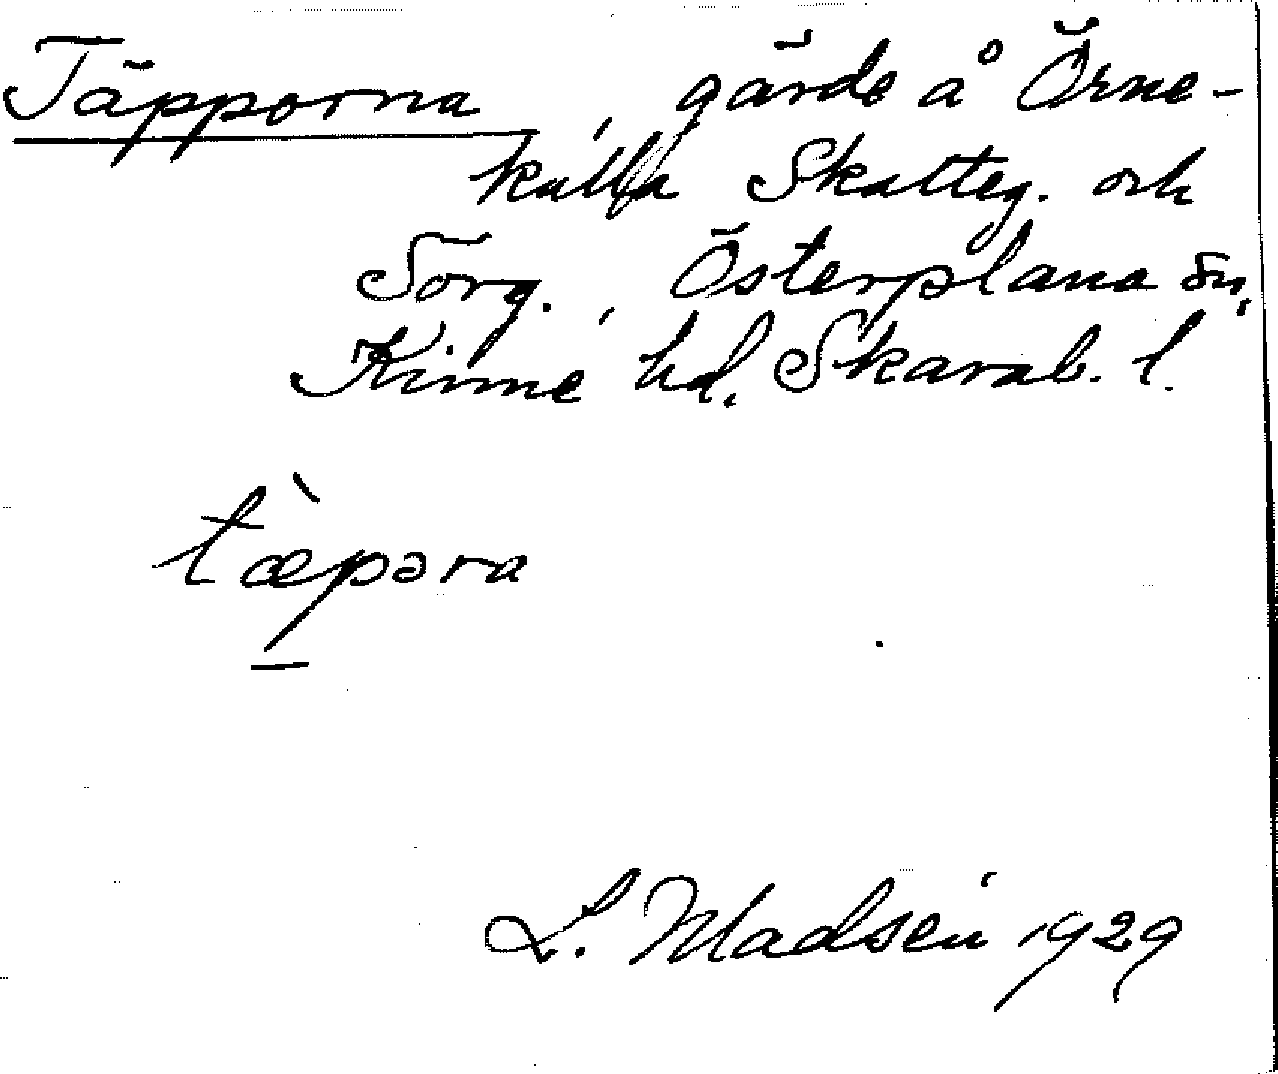 Täpporna, gärde å Örne-
kulla Skatteg. och
Sörg., Österplana sn,
Kinne hd, Skarab. l.
tæ̀pəra
L. Madsén 1929